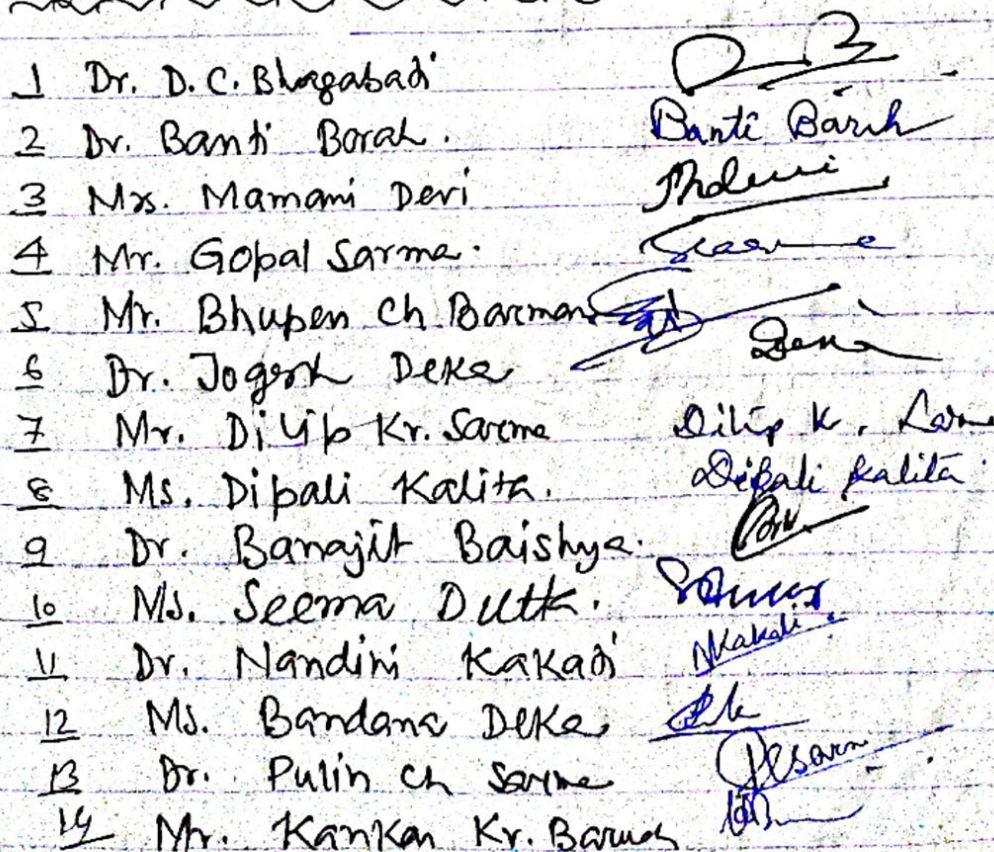 1 Dr. D. C. Bhagabadi
2 Dr. Banti Borah. Banti Borah
3 Mrs. Mamani Devi
4 Mr. Gopal Sarma.
5 Mr. Bhupen Ch Barman
6 Dr. Jogesh Deka Deka
7 Mr. Dilip Kr. Sarma Dilip K.
8 Ms. Dipali Kalita. Dipali Kalita
9 Dr. Banajit Baishya.
10 Ms. Seema Dutta.
11 Dr. Nandini Kakadi NKakati
12 Ms. Bandana Deka
13 Dr. Pulin Ch Sarma
14 Mr. Kankan Kr. Baruah